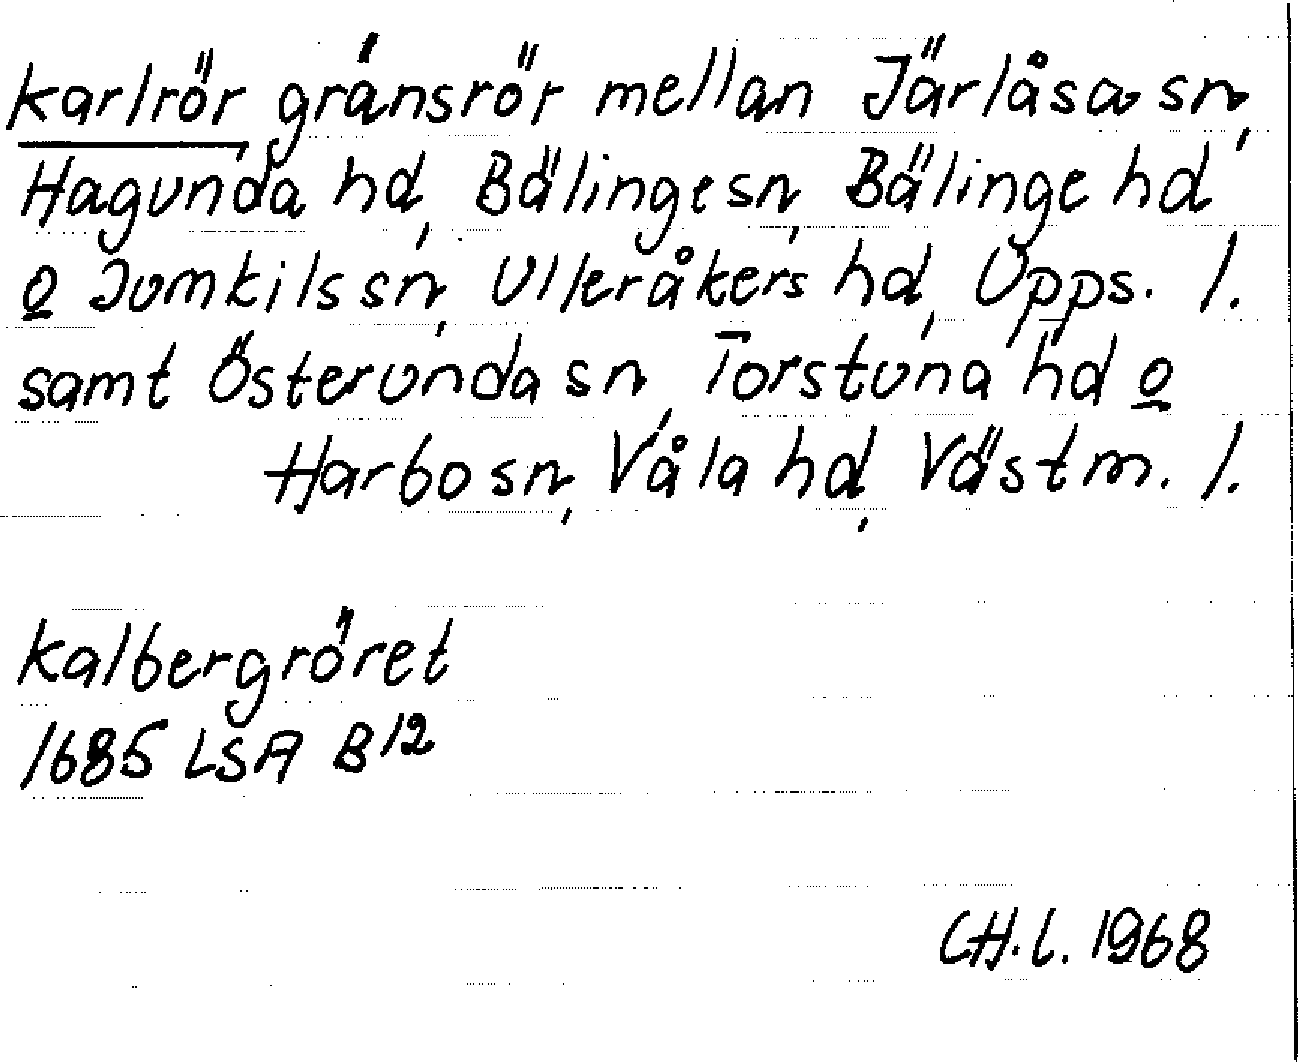 Karlrör gränsrör mellan Järlåsa sn,
Hagunda hd, Bälinge sn, Bälinge hd
o Jumkils sn, Ulleråkers hd, Upps. l.
samt Österunda sn, Torstuna hd o
Harbo sn, Våla hd, Västm. l.
Kalbergröret
1685 LSA B12
CH.L. 1968